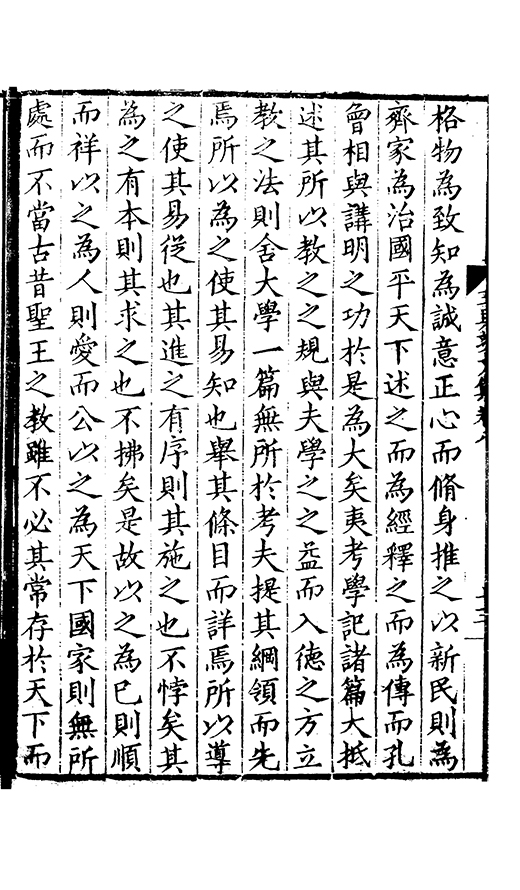 格物為致知為誠意正心而脩身推之以新民則為
齊家為治國平天下述之而為經釋之而為傳而孔
曾相與講明之功於是為大矣夷考學記諸篇大抵
述其所以教之之規與夫學之之益而入德之方立
教之法則舍大學一篇無所於考夫提其綱領而先
焉所以為之使其易知也舉其條目而詳焉所以導
之使其易從也其進之有序則其施之也不悖矣其
為之有本則其求之也不拂矣是故以之為已則順
而祥以之為人則愛而公以之為天下國家則無所
處而不當古昔聖王之教雖不必其常存於天下而